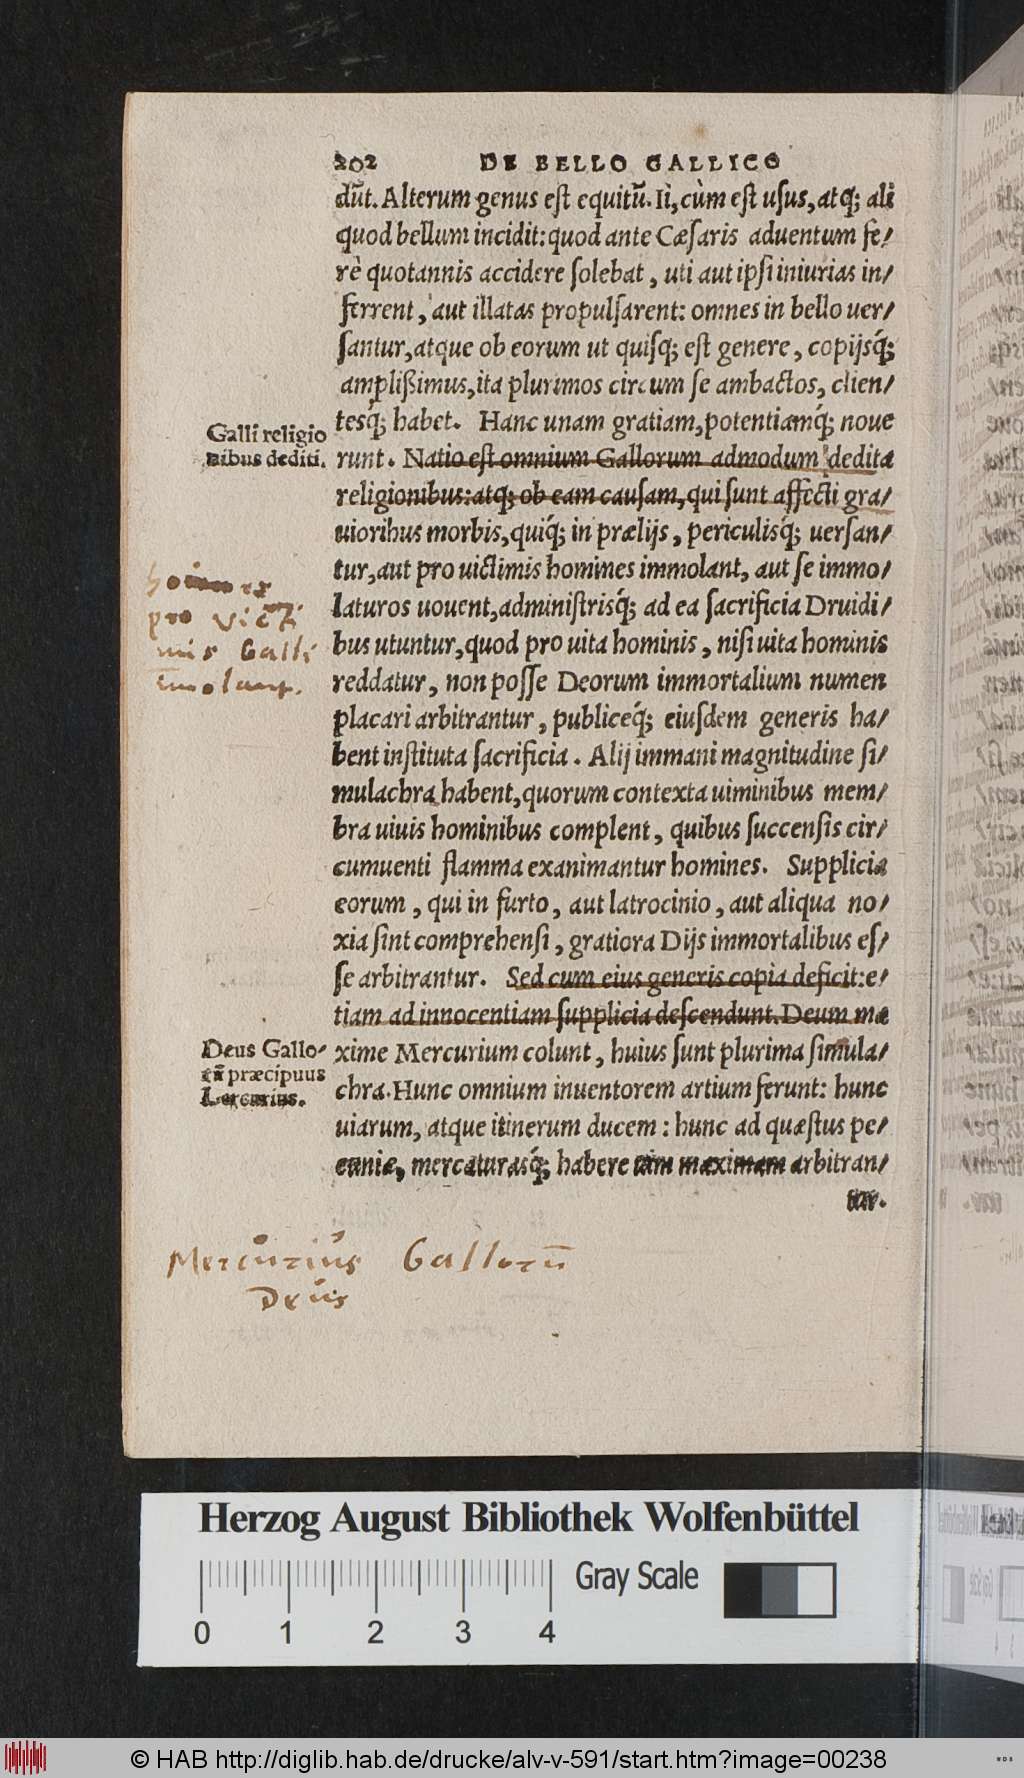 202 DE BELLO GALLICO
dūt. Alterum genus est equitū. Ii, cùm est usus, atq; ali
quod bellum incidit: quod ante Cæsaris aduentum fe/
rè quotannis accidere solebat, uti aut ipsi iniurias in/
ferrent, aut illatas propulsarent: omnes in bello uer/
santur, atque ob eorum ut quisq; est genere, copijsq́;
amplißimus, ita plurimos circum se ambactos, clien/
tesq́; habet. Hanc unam gratiam, potentiamq́; noue
runt. Natio est omnium Gallorum admodum dedita
religionibus: atq; ob eam causam, qui sunt affecti gra/
uioribus morbis, quiq́; in prælijs, periculisq́; uersan/
tur, aut pro uictimis homines immolant, aut se immo/
laturos uouent, administrisq́; ad ea sacrificia Druidi/
bus utuntur, quod pro uita hominis, nisi uita hominis
reddatur, non posse Deorum immortalium numen
placari arbitrantur, publiceq́; eiusdem generis ha/
bent instituta sacrificia. Alij immani magnitudine si/
mulachra habent, quorum contexta uiminibus mem/
bra uiuis hominibus complent, quibus succensis cir/
cumuenti flamma exanimantur homines. Supplicia
eorum, qui in furto, aut latrocinio, aut aliqua no/
xia sint comprehensi, gratiora Dijs immortalibus es/
se arbitrantur. Sed cum eius generis copia deficit: e/
tiam ad innocentiam supplicia descendunt. Deum ma
xime Mercurium colunt, huius sunt plurima simula/
chra. Hunc omnium inuentorem artium ferunt: hunc
uiarum, atque itinerum ducem: hunc ad quæstus pe/
cuniæ, mercaturasq́; habere uim maximam arbitran/
tur.
Galli religio
nibus dediti.
homines
pro victi
mis Galli
imolant.
Deus Gallo-
rū præcipuus
Mercurius.
Mercurius Gallorū
Deus
Herzog August Bibliothek Wolfenbüttel
Gray Scale
0 1 2 3 4
© HAB http://diglib.hab.de/drucke/alv-v-591/start.htm?image=00238